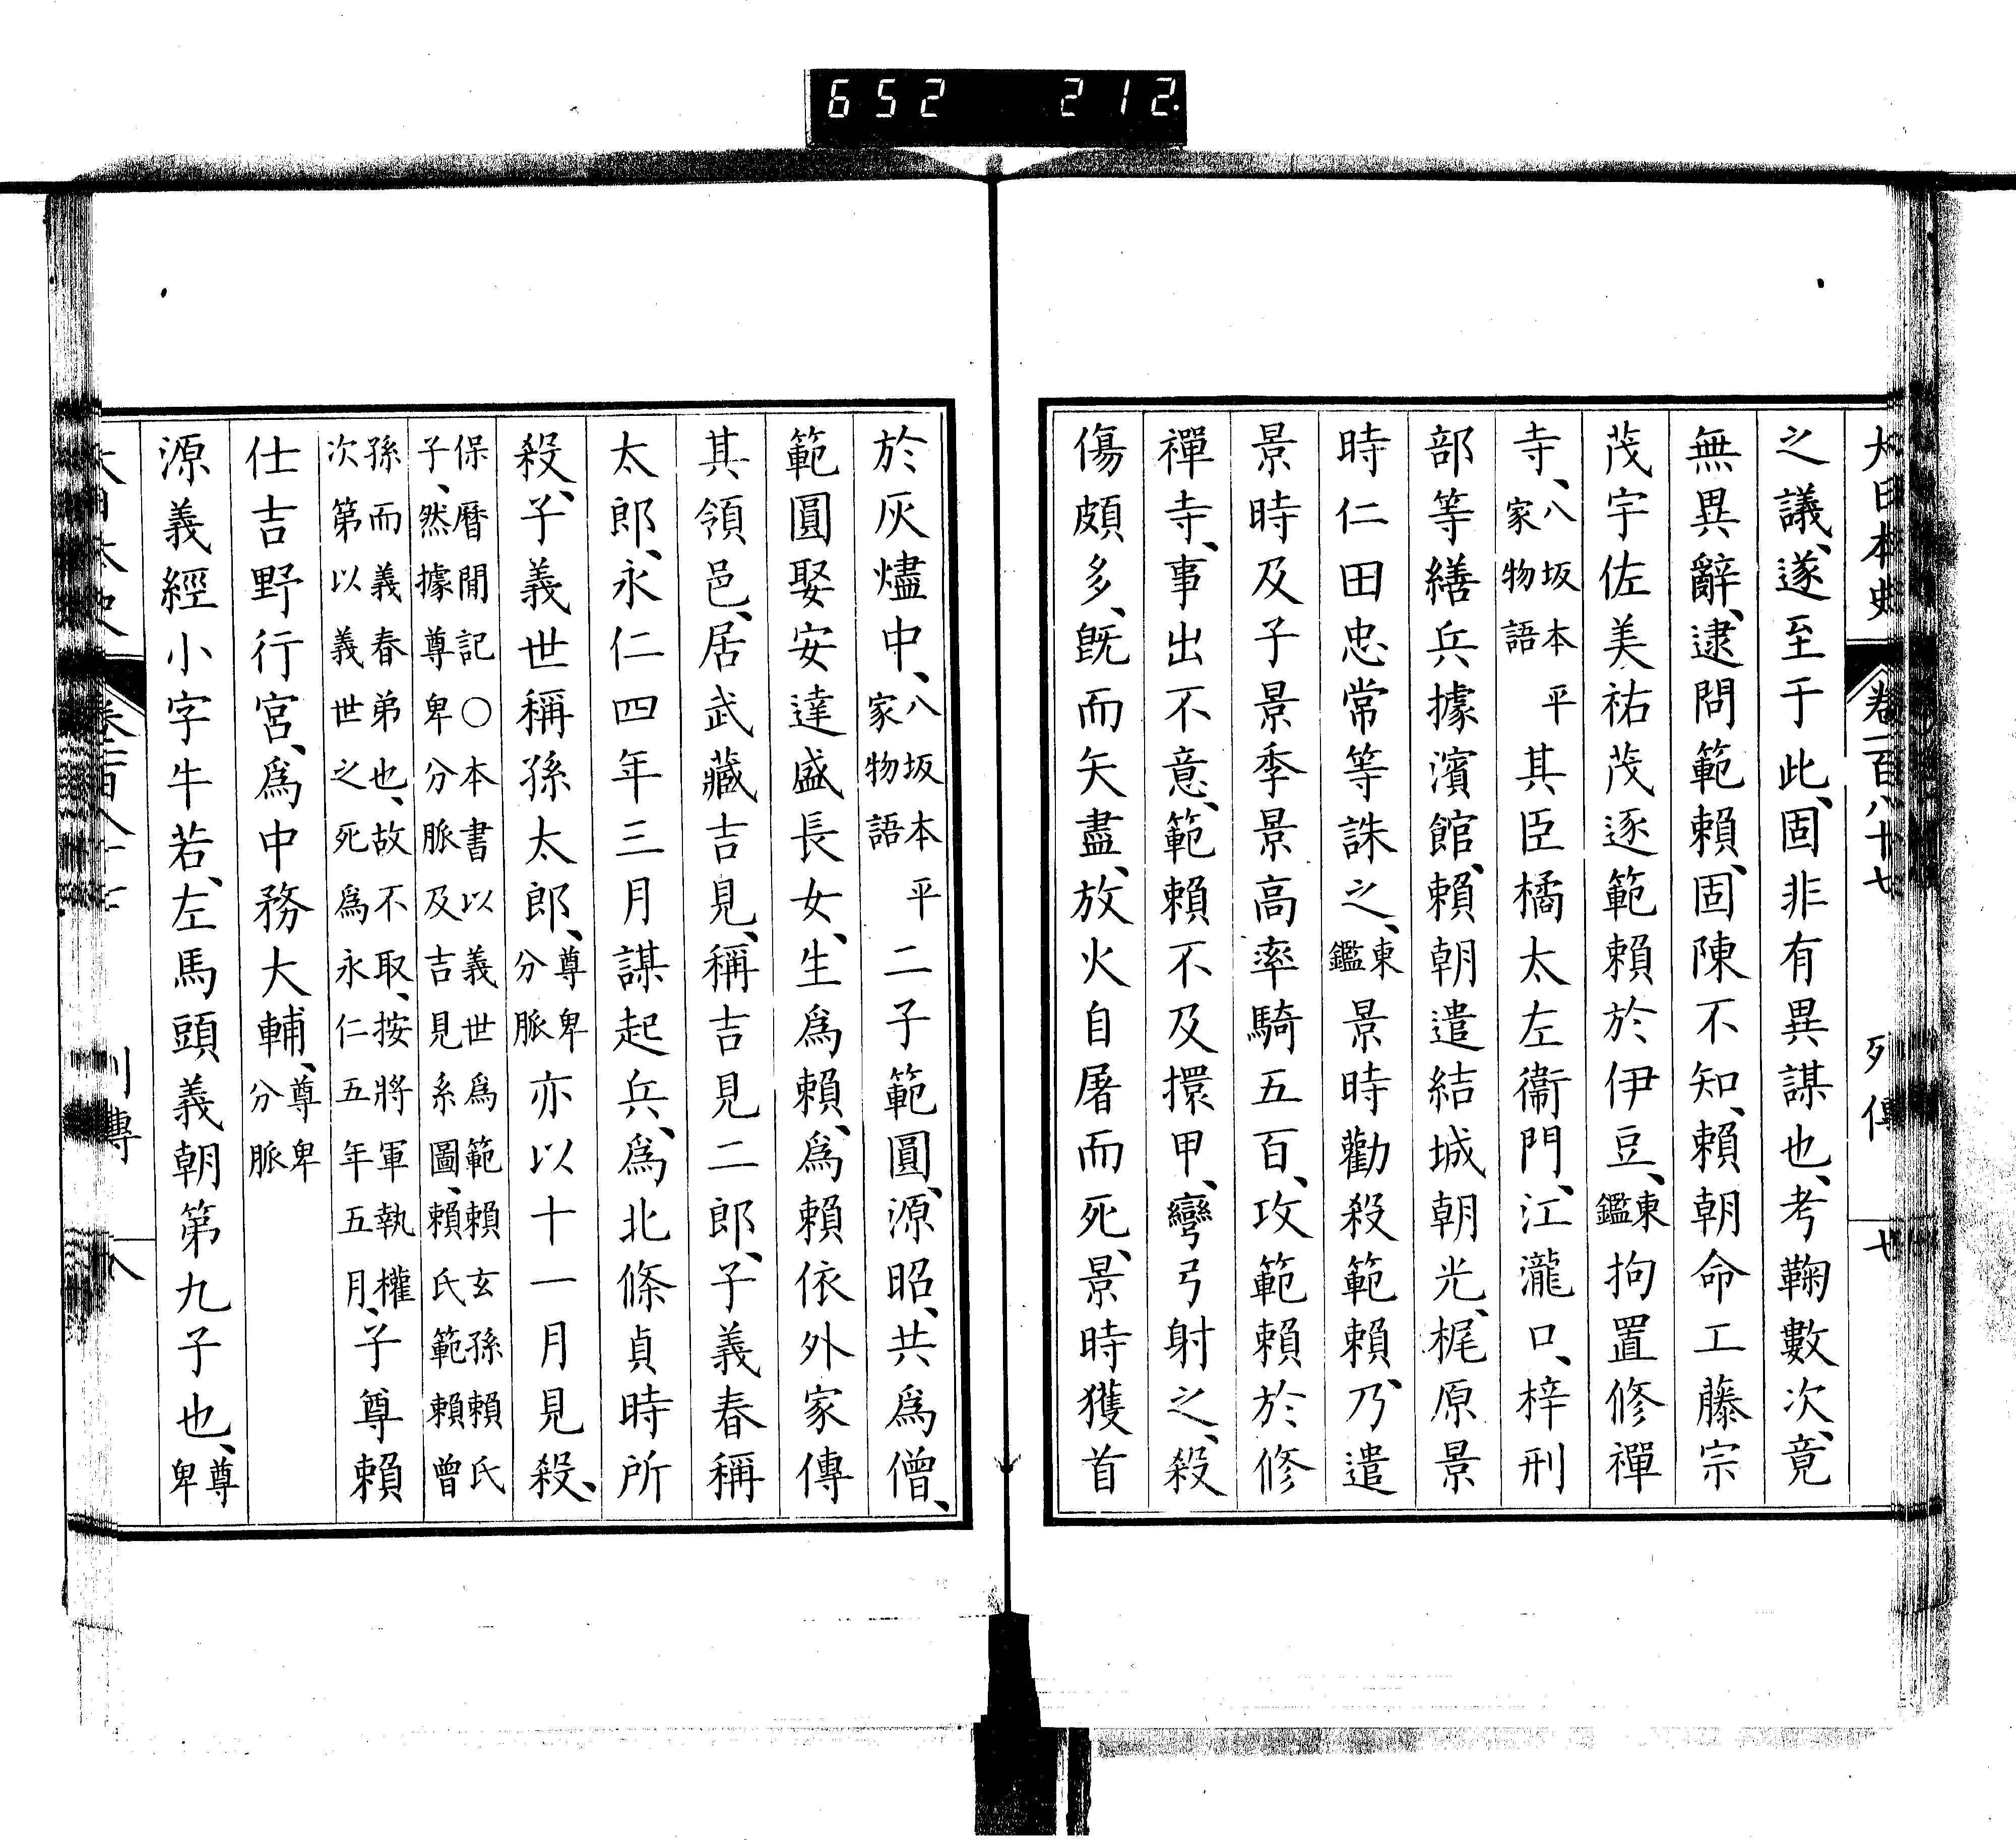 652 212
大日本史 卷一百八十七 列傳 七
之議、遂至于此、固非有異謀也、考鞠數次、竟
無異辭、逮問範賴、固陳不知、賴朝命工藤宗
茂宇佐美祐茂逐範賴於伊豆、東鑑拘置修禪
寺、八坂本平家物語其臣橘太左衞門、江瀧口、梓刑
部等繕兵據濱館、賴朝遣結城朝光、梶原景
時仁田忠常等誅之、東鑑景時勸殺範賴、乃遣
景時及子景季景高率騎五百、攻範賴於修
禪寺、事出不意、範賴不及擐甲、彎弓射之、殺
傷頗多、既而矢盡、放火自屠而死、景時獲首
於灰燼中、八坂本平家物語二子範圓、源昭、共爲僧、
範圓娶安達盛長女、生爲賴、爲賴依外家傳
其領邑、居武藏吉見、稱吉見二郎、子義春稱
太郎、永仁四年三月謀起兵、爲北條貞時所
殺、子義世稱孫太郎、尊卑分脈亦以十一月見殺、
保曆閒記○本書以義世爲範賴玄孫賴氏
子、然據尊卑分脈及吉見系圖、賴氏範賴曾
孫而義春弟也、故不取、按將軍執權
次第以義世之死爲永仁五年五月、子尊賴
仕吉野行宮、爲中務大輔、尊卑分脈
源義經小字牛若、左馬頭義朝第九子也、尊卑
大日本史 卷一百八十七 列傳 八